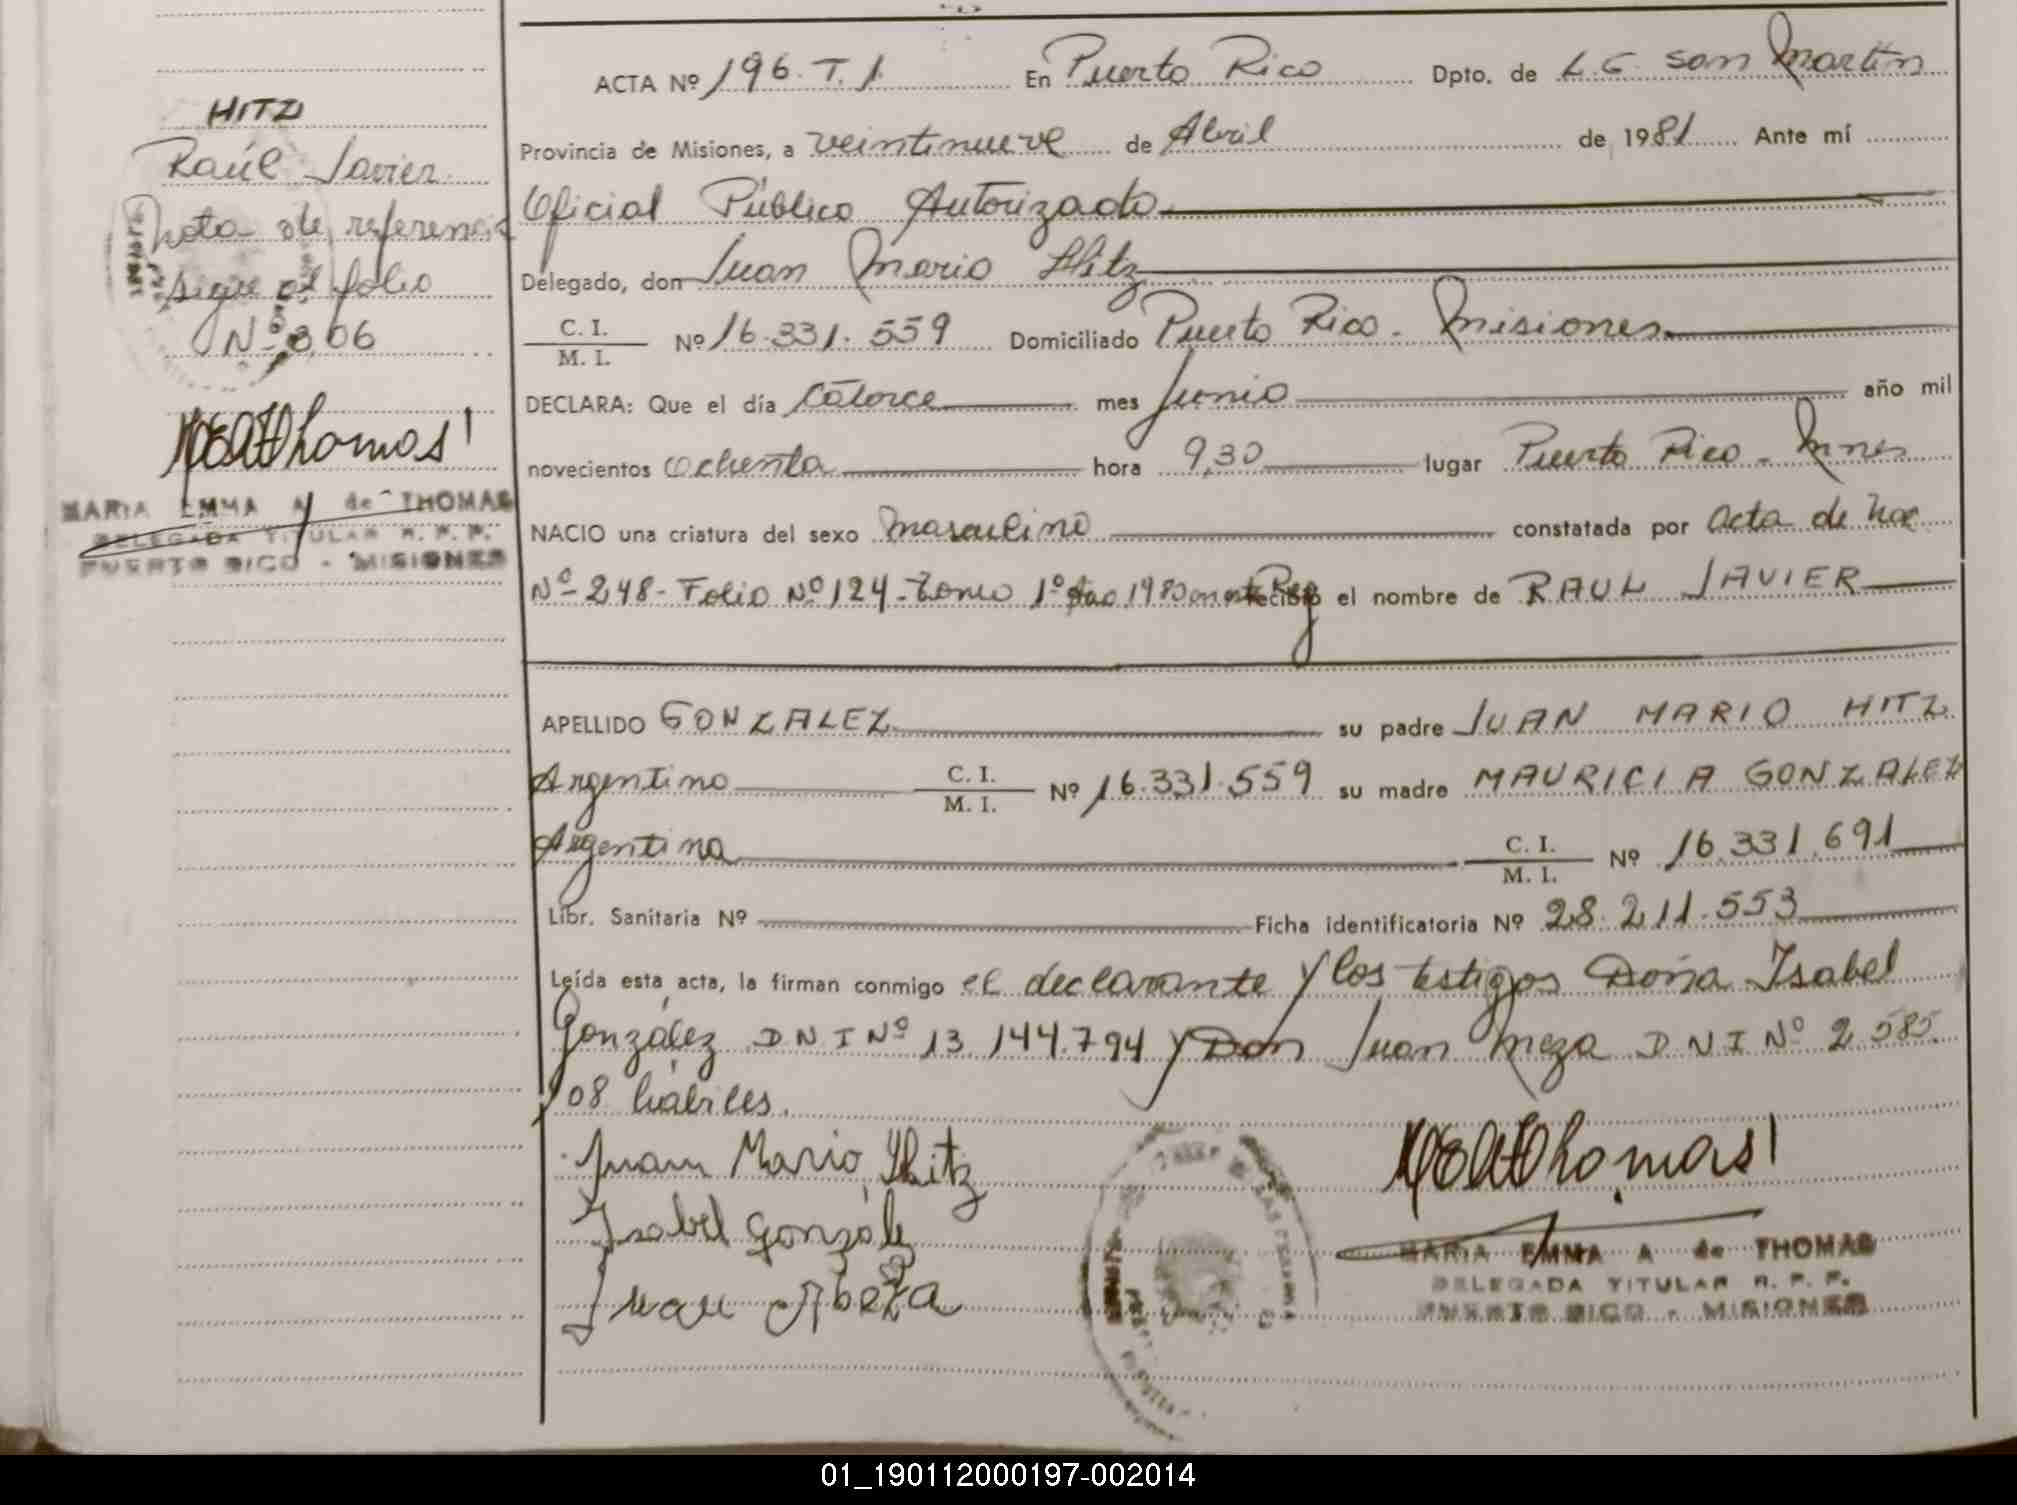 HITZ
Raúl Javier
Nota de referencia
sigue al folio
Nº 306
MEAThomas
MARIA EMMA A de THOMAS
DELEGADA TITULAR R. P. P.
PUERTO RICO - MISIONES
ACTA Nº 196. T. 1. En Puerto Rico Dpto. de L. G. San Martín
Provincia de Misiones, a veintinueve de Abril de 1981 Ante mí
Oficial Público Autorizado
Delegado, don Juan Mario Hitz
C. I.
M. I. Nº 16.331.559 Domiciliado Puerto Rico - Misiones
DECLARA: Que el día Catorce mes Junio año mil
novecientos ochenta hora 9,30 lugar Puerto Rico - Mnes
NACIO una criatura del sexo masculino constatada por Acta de Nac
Nº 248 - Folio Nº 124 - Tomo 1º Año 1980 recibió el nombre de RAUL JAVIER
APELLIDO GONZALEZ su padre JUAN MARIO HITZ
Argentino C. I. M. I. Nº 16.331.559 su madre MAURICIA GONZALEZ
Argentina C. I. M. I. Nº 16.331.691
Libr. Sanitaria Nº Ficha identificatoria Nº 28.211.553
Leída esta acta, la firman conmigo el declarante y los testigos Doña Isabel
González DNI Nº 13.144.794 y Don Juan Meza DNI Nº 2.585.
108 hábiles.
Juan Mario Hitz
Isabel Gonzále
Juan
MEAThomas
MARIA EMMA A de THOMAS
DELEGADA TITULAR R. P. P.
PUERTO RICO - MISIONES
01_190112000197-002014